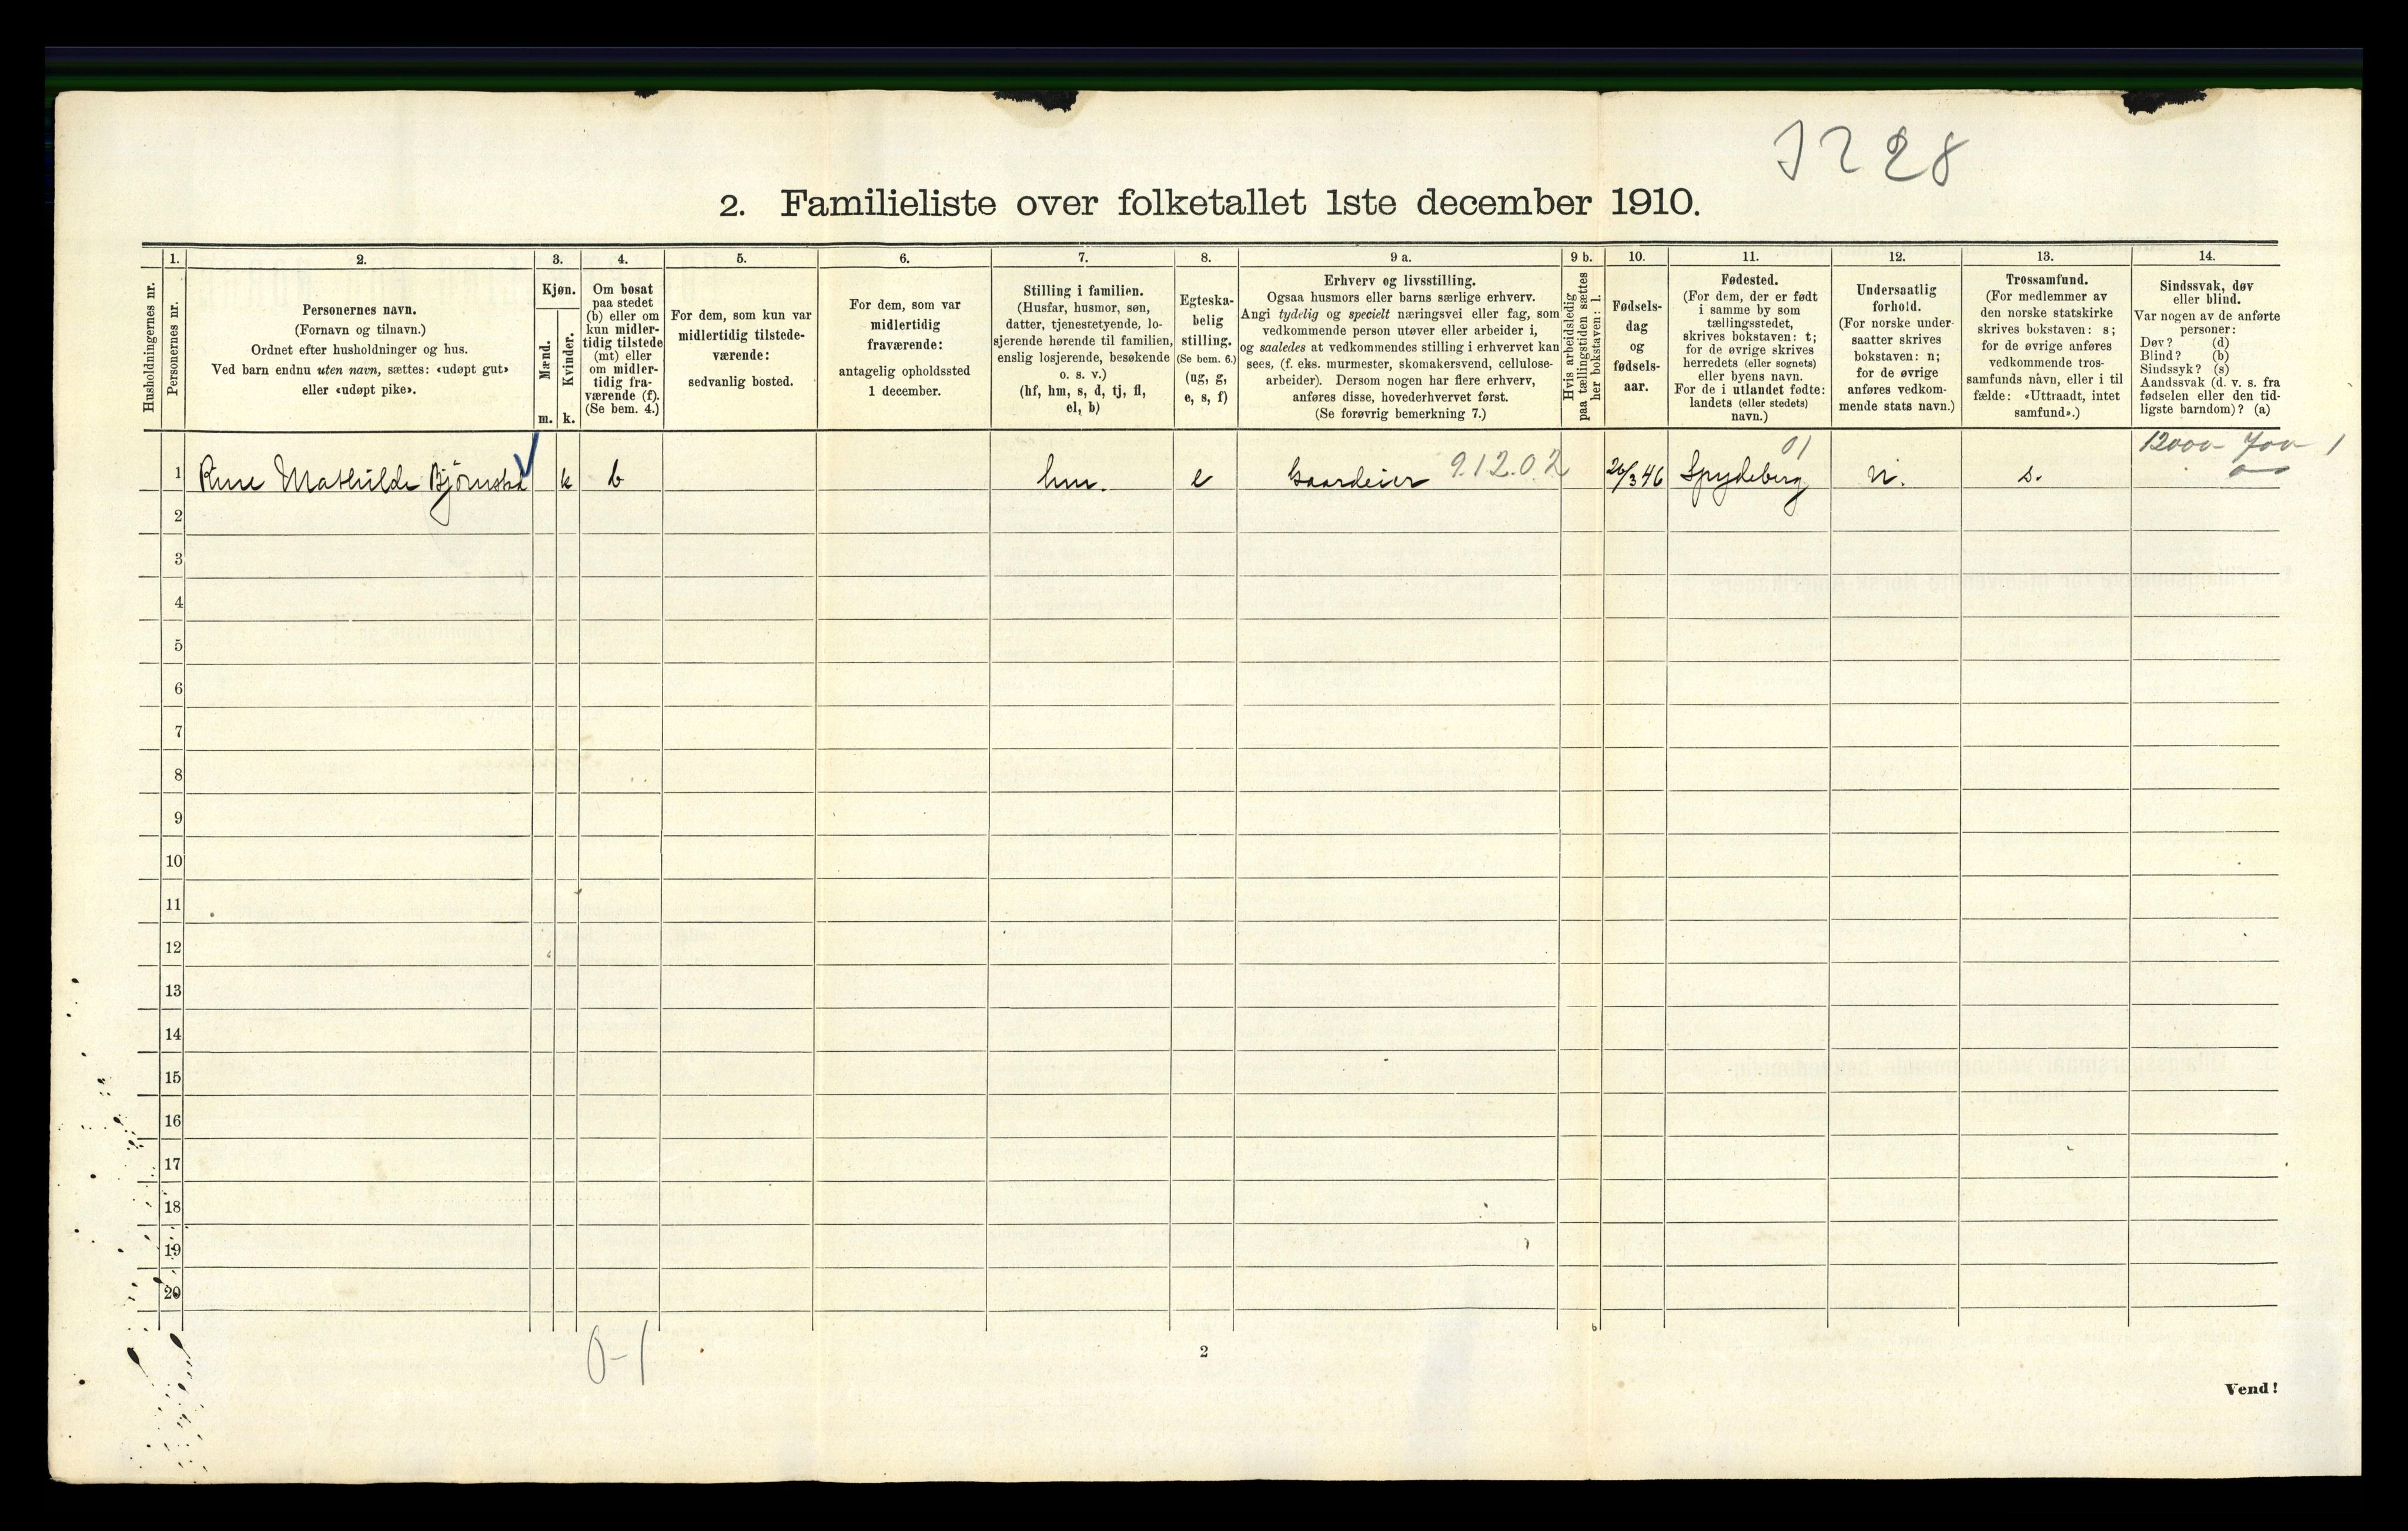 2. Familieliste over folketallet 1ste december 1910.
Husholdningernes nr.
1.
Personernes nr.
2.
Personernes navn.
(Fornavn og tilnavn.)
Ordnet efter husholdninger og hus.
Ved barn endnu uten navn, sættes: «udøpt gut»
eller «udøpt pike».
3.
Kjøn.
Mænd.
Kvinder.
m. k.
4.
Om bosat
paa stedet
(b) eller om
kun midler-
tidig tilstede
(mt) eller
om midler-
tidig fra-
værende (f).
(Se bem. 4.)
5.
For dem, som kun var
midlertidig tilstede-
værende:
sedvanlig bosted.
6.
For dem, som var
midlertidig
fraværende:
antagelig opholdssted
1 december.
7.
Stilling i familien.
(Husfar, husmor, søn,
datter, tjenestetyende, lo-
sjerende hørende til familien,
enslig losjerende, besøkende
o. s. v.)
(hf, hm, s, d, tj, fl,
el, b)
8.
Egteska-
belig
stilling.
(Se bem. 6.)
(ug, g,
e, s, f)
9 a.
Erhverv og livsstilling.
Ogsaa husmors eller barns særlige erhverv.
Angi tydelig og specielt næringsvei eller fag, som
vedkommende person utøver eller arbeider i,
og saaledes at vedkommendes stilling i erhvervet kan
sees, (f. eks. murmester, skomakersvend, cellulose-
arbeider). Dersom nogen har flere erhverv,
anføres disse, hovederhvervet først.
(Se forøvrig bemerkning 7.)
9 b.
Hvis arbeidsledig
paa tællingstiden sættes
her bokstaven: l.
10.
Fødsels-
dag
og
fødsels-
aar.
11.
Fødested.
(For dem, der er født
i samme by som
tællingsstedet,
skrives bokstaven: t;
for de øvrige skrives
herredets (eller sognets)
eller byens navn.
For de i utlandet fødte:
landets (eller stedets)
navn.)
12.
Undersaatlig
forhold.
(For norske under-
saatter skrives
bokstaven: n;
for de øvrige
anføres vedkom-
mende stats navn.)
13.
Trossamfund.
(For medlemmer av
den norske statskirke
skrives bokstaven: s;
for de øvrige anføres
vedkommende tros-
samfunds navn, eller i til
fælde: «Uttraadt, intet
samfund».)
14.
Sindssvak, døv
eller blind.
Var nogen av de anførte
personer:
Døv? (d)
Blind? (b)
Sindssyk? (s)
Aandssvak (d. v. s. fra
fødselen eller den tid-
ligste barndom)? (a)
01
1 Mathilde Bjørnstad k b hm. e Gaardeier 9.12.02 26/3 46 Spydeberg n. s.
2
3
4
5
6
7
8
9
10
11
12
13
14
15
16
17
18
19
20
0-1
2
Vend!